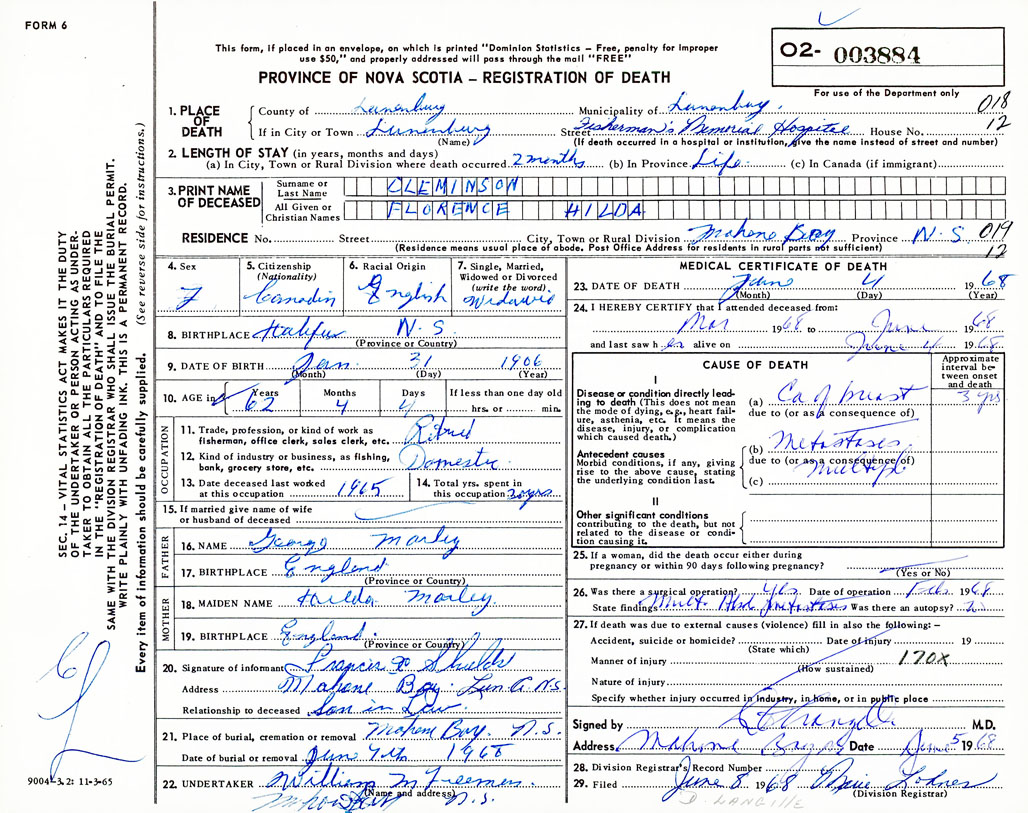 FORM 6
This form, if placed in an envelope, on which is printed "Dominion Statistics – Free, penalty for improper
use $50," and properly addressed will pass through the mail "FREE"
PROVINCE OF NOVA SCOTIA – REGISTRATION OF DEATH
02- 003884
For use of the Department only
018
12
1. PLACE OF DEATH
County of Lunenburg Municipality of Lunenburg
If in City or Town Lunenburg Street Fisherman's Memorial Hospital House No.
(Name) (If death occurred in a hospital or institution, give the name instead of street and number)
2. LENGTH OF STAY (in years, months and days)
(a) In City, Town or Rural Division where death occurred 2 months (b) In Province Life (c) In Canada (if immigrant)
3. PRINT NAME OF DECEASED
Surname or Last Name CLEMINSON
All Given or Christian Names FLORENCE HILDA
RESIDENCE No. Street City, Town or Rural Division Mahone Bay Province N.S
019
12
(Residence means usual place of abode. Post Office Address for residents in rural parts not sufficient)
4. Sex F
5. Citizenship (Nationality) Canadin
6. Racial Origin English
7. Single, Married, Widowed or Divorced (write the word)
8. BIRTHPLACE Halifax N.S.
(Province or Country)
9. DATE OF BIRTH Jan 31 1906
(Month) (Day) (Year)
10. AGE in Years 62 Months 4 Days 4 If less than one day old hrs. or min.
OCCUPATION
11. Trade, profession, or kind of work as fisherman, office clerk, sales clerk, etc. Retired
12. Kind of industry or business, as fishing, bank, grocery store, etc. Domestic
13. Date deceased last worked at this occupation 1965
14. Total yrs. spent in this occupation 20 yrs
15. If married give name of wife or husband of deceased
FATHER
16. NAME George Morley
17. BIRTHPLACE England
(Province or Country)
MOTHER
18. MAIDEN NAME Hilda Morley
19. BIRTHPLACE England
(Province or Country)
20. Signature of informant Francis X Shields
Address Mahone Bay Lun. Co. N.S.
Relationship to deceased Son in Law
21. Place of burial, cremation or removal Mahone Bay N.S.
Date of burial or removal June 7th 1968
22. UNDERTAKER William M Freeman
(Name and address) N.S.
MEDICAL CERTIFICATE OF DEATH
23. DATE OF DEATH June 4 1968
(Month) (Day) (Year)
24. I HEREBY CERTIFY that I attended deceased from:
Mar 1968 to June 1968
and last saw her alive on June 4 1968
CAUSE OF DEATH
Approximate interval between onset and death
I
Disease or condition directly leading to death (This does not mean the mode of dying, e.g., heart failure, asthenia, etc. It means the disease, injury, or complication which caused death.)
(a) Ca of breast 3 yrs
due to (or as a consequence of)
Antecedent causes
Morbid conditions, if any, giving rise to the above cause, stating the underlying condition last.
(b) Metastases
due to (or as a consequence of)
multiple
(c)
II
Other significant conditions
contributing to the death, but not related to the disease or condition causing it.
25. If a woman, did the death occur either during
pregnancy or within 90 days following pregnancy?
(Yes or No)
26. Was there a surgical operation? yes Date of operation Feb. 1968
State findings Mult. metastases Was there an autopsy?
27. If death was due to external causes (violence) fill in also the following: –
Accident, suicide or homicide? Date of injury 19
(State which)
Manner of injury 170X
(How sustained)
Nature of injury
Specify whether injury occurred in industry, in home, or in public place
Signed by M.D.
Address Mahone Bay Date June 5 1968
28. Division Registrar's Record Number
29. Filed June 8 1968
(Division Registrar)
D. LANGILLE
SEC. 14 – VITAL STATISTICS ACT MAKES IT THE DUTY
OF THE UNDERTAKER OR PERSON ACTING AS UNDER-
TAKER TO OBTAIN ALL THE PARTICULARS REQUIRED
IN THE "REGISTRATION OF DEATH" AND TO FILE THE
SAME WITH THE DIVISION REGISTRAR WHO SHALL ISSUE THE BURIAL PERMIT.
WRITE PLAINLY WITH UNFADING INK. THIS IS A PERMANENT RECORD.
Every item of information should be carefully supplied. (See reverse side for instructions.)
9004-3.2: 11-3-65